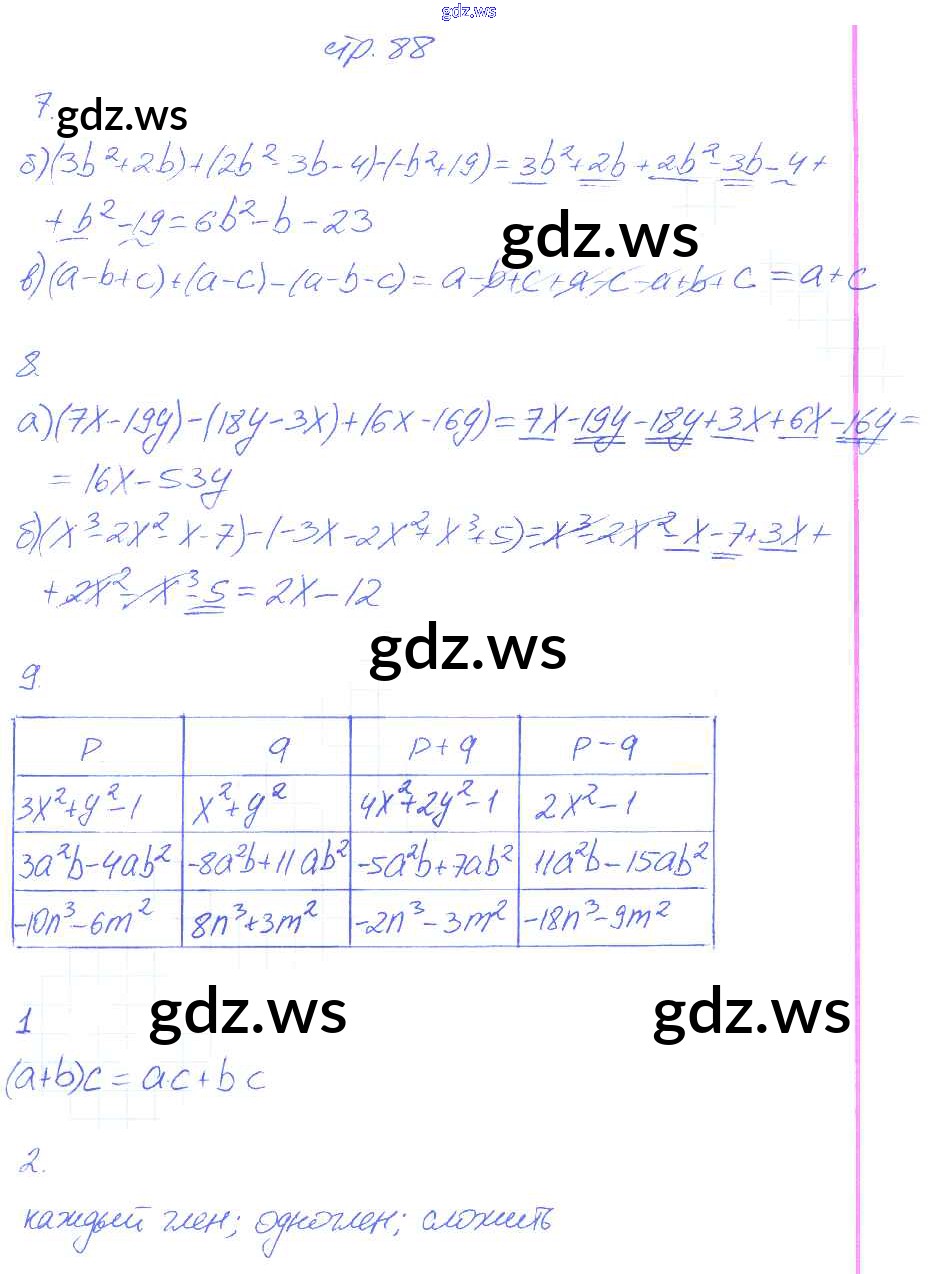 gdz.ws
стр. 88
7. gdz.ws
б) (3b²+2b)+(2b²-3b-4)-(-b²+19)=3b²+2b+2b²-3b-4+
+b²-19=6b²-b-23
gdz.ws
в) (a-b+c)+(a-c)-(a-b-c)=a-b+c+a-c-a+b+c=a+c
8.
а) (7x-19y)-(18y-3x)+(6x-16y)=7x-19y-18y+3x+6x-16y=
=16x-53y
б) (x³-2x²-x-7)-(-3x-2x²+x³+5)=x³-2x²-x-7+3x+
+2x²-x³-5=2x-12
gdz.ws
9.
p q p+q p-q
3x²+y²-1 x²+y² 4x²+2y²-1 2x²-1
3a²b-4ab² -8a²b+11ab² -5a²b+7ab² 11a²b-15ab²
-10n³-6m² 8n³+3m² -2n³-3m² -18n³-9m²
gdz.ws gdz.ws
1
(a+b)c=ac+bc
2.
каждый член; одночлен; сложить